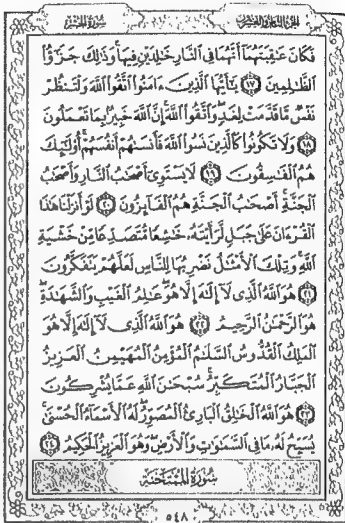 الجزء الثامن والعشرون سورة الحشر
فَكَانَ عَٰقِبَتَهُمَآ أَنَّهُمَا فِي ٱلنَّارِ خَٰلِدَيْنِ فِيهَاۚ وَذَٰلِكَ جَزَٰٓؤُا۟
ٱلظَّٰلِمِينَ ١٧ يَٰٓأَيُّهَا ٱلَّذِينَ ءَامَنُوا۟ ٱتَّقُوا۟ ٱللَّهَ وَلْتَنظُرْ
نَفْسٌ مَّا قَدَّمَتْ لِغَدٍۖ وَٱتَّقُوا۟ ٱللَّهَۚ إِنَّ ٱللَّهَ خَبِيرٌۢ بِمَا تَعْمَلُونَ
١٨ وَلَا تَكُونُوا۟ كَٱلَّذِينَ نَسُوا۟ ٱللَّهَ فَأَنسَىٰهُمْ أَنفُسَهُمْۚ أُو۟لَٰٓئِكَ
هُمُ ٱلْفَٰسِقُونَ ١٩ لَا يَسْتَوِىٓ أَصْحَٰبُ ٱلنَّارِ وَأَصْحَٰبُ
ٱلْجَنَّةِۚ أَصْحَٰبُ ٱلْجَنَّةِ هُمُ ٱلْفَآئِزُونَ ٢٠ لَوْ أَنزَلْنَا هَٰذَا
ٱلْقُرْءَانَ عَلَىٰ جَبَلٍ لَّرَأَيْتَهُۥ خَٰشِعًا مُّتَصَدِّعًا مِّنْ خَشْيَةِ
ٱللَّهِۚ وَتِلْكَ ٱلْأَمْثَٰلُ نَضْرِبُهَا لِلنَّاسِ لَعَلَّهُمْ يَتَفَكَّرُونَ
٢١ هُوَ ٱللَّهُ ٱلَّذِى لَآ إِلَٰهَ إِلَّا هُوَۖ عَٰلِمُ ٱلْغَيْبِ وَٱلشَّهَٰدَةِۖ
هُوَ ٱلرَّحْمَٰنُ ٱلرَّحِيمُ ٢٢ هُوَ ٱللَّهُ ٱلَّذِى لَآ إِلَٰهَ إِلَّا هُوَ
ٱلْمَلِكُ ٱلْقُدُّوسُ ٱلسَّلَٰمُ ٱلْمُؤْمِنُ ٱلْمُهَيْمِنُ ٱلْعَزِيزُ
ٱلْجَبَّارُ ٱلْمُتَكَبِّرُۚ سُبْحَٰنَ ٱللَّهِ عَمَّا يُشْرِكُونَ
٢٣ هُوَ ٱللَّهُ ٱلْخَٰلِقُ ٱلْبَارِئُ ٱلْمُصَوِّرُۖ لَهُ ٱلْأَسْمَآءُ ٱلْحُسْنَىٰۚ
يُسَبِّحُ لَهُۥ مَا فِى ٱلسَّمَٰوَٰتِ وَٱلْأَرْضِۖ وَهُوَ ٱلْعَزِيزُ ٱلْحَكِيمُ ٢٤
سُورَةُ المُمْتَحَنَةِ
٥٤٨